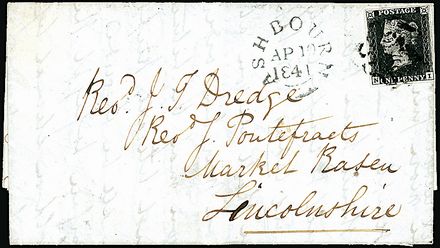 ASHBOURN
AP 19
1841
POSTAGE
ONE PENNY
Revd. J. T. Dredge
Revd J. Pontefracts
Market Rasen
Lincolnshire